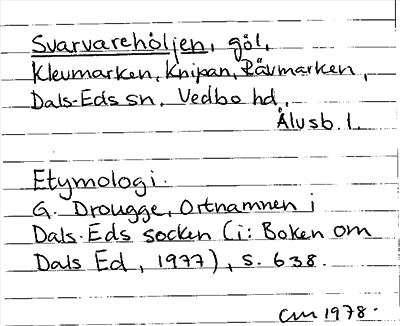 Svarvarehöljen, göl,
Klevmarken, Knipan, Rävmarken,
Dals-Eds sn, Vedbo hd,
Älvsb. l.
Etymologi.
G. Drougge, Ortnamnen i
Dals-Eds socken (i: Boken om
Dals Ed, 1977), s. 638.
CM 1978.